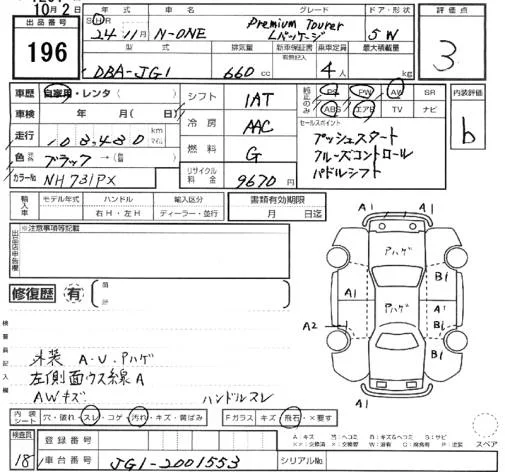 10月2日
出品番号 196
年式 S・H・R 24年11月
車名 N-ONE
グレード Premium Tourer Lパッケージ
ドア・形状 5 W
評価点 3
型式 DBA-JG1
排気量 660 cc
新車保証書 有無記入
乗車定員 4人
最大積載量 kg
車歴 自家用・レンタ( )
車検 年 月( 日)
走行 108,480 km マイル
色 ブラック →
カラーNo NH731PX
シフト IAT
冷房 AAC
燃料 G
リサイクル料金 9670円
純正のみ PS PW AW SR
ABS エアB TV ナビ
セールスポイント
プッシュスタート
クルーズコントロール
パドルシフト
内装評価 b
輸入車 モデル年式 ハンドル 右H・左H 輸入区分 ディーラー・並行
書類有効期限 月 日迄
出品店申告欄 ※注意事項等記載
修復歴 有
検査員記入欄
外装 A・U・Pハゲ
左側面ウス線A
AWキズ
ハンドルスレ
A1 A1
Pハゲ
B1
A1 Pハゲ A1 B1
A2 B1
A1 A1
内装シート 穴・破れ・スレ・コゲ・汚れ・キズ・黄ばみ
Fガラス キズ・飛石・×要す
スペア
検査員 18
登録番号
車台番号 JG1-2001553
シリアルNo